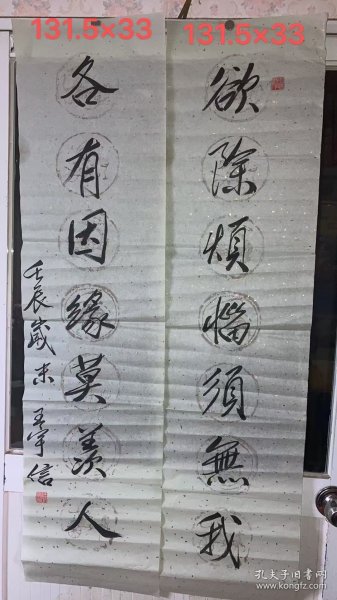 131.5×33
131.5×33
欲除烦惱須無我
各有因緣莫羡人
壬辰歲末 王宇信
孔夫子旧书网
www.kongfz.com